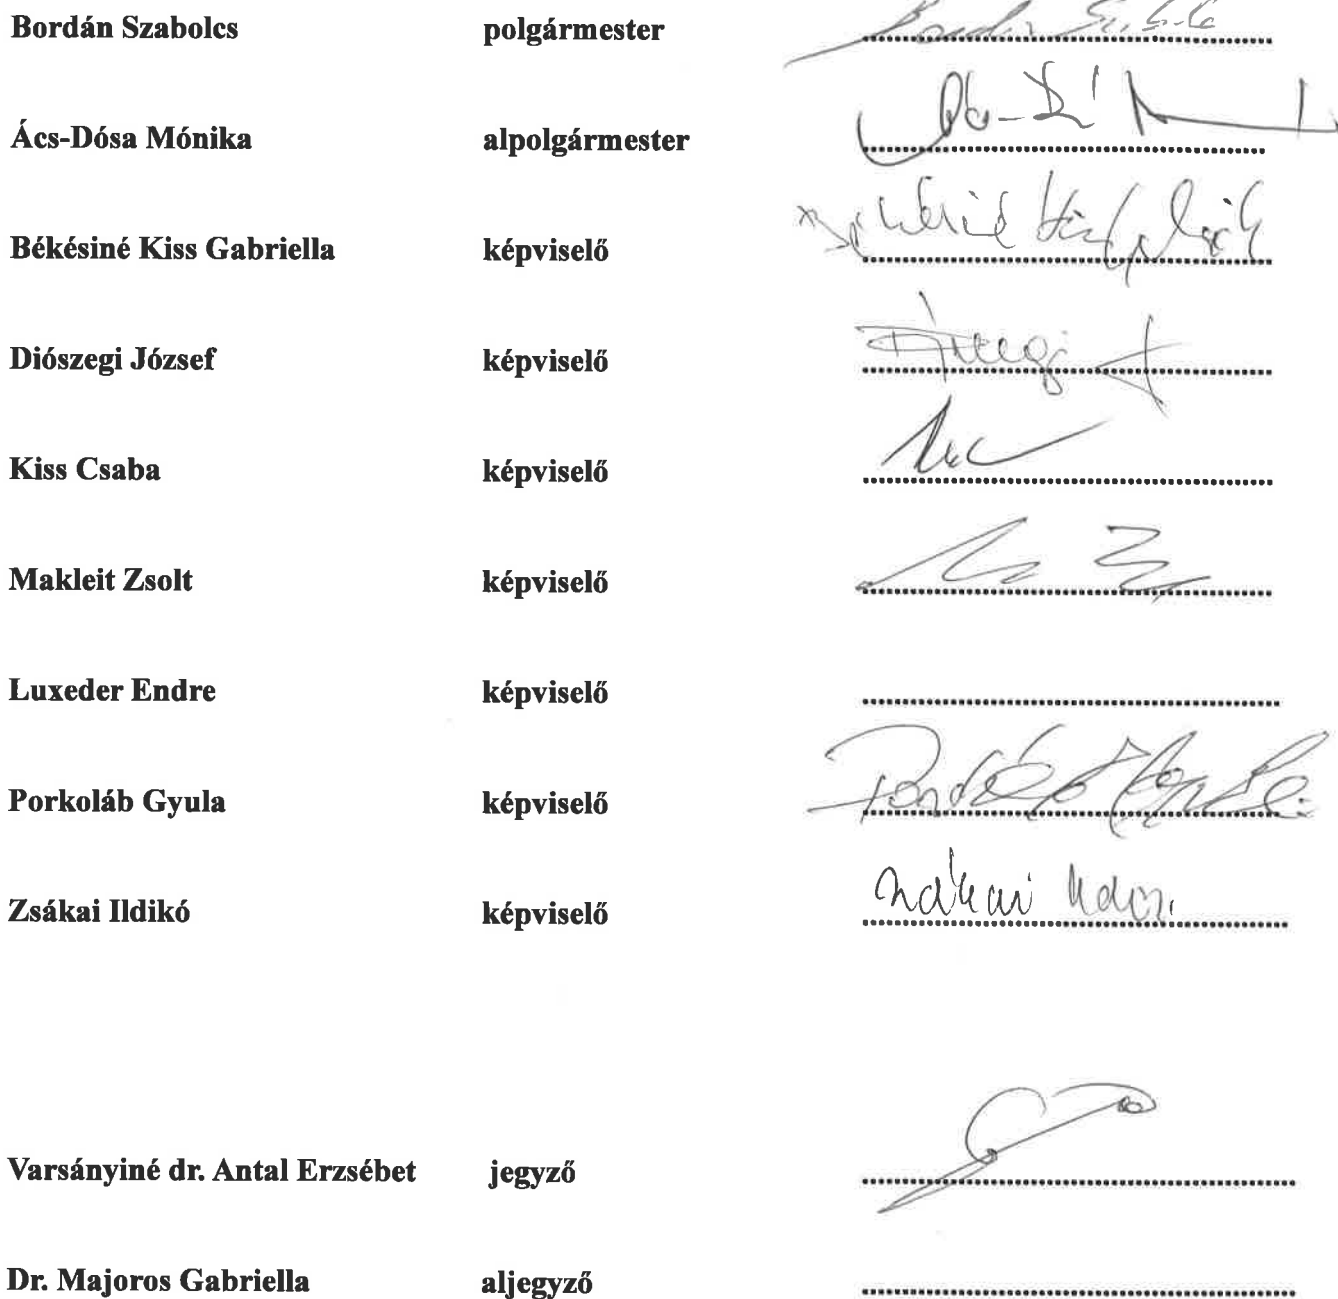 Bordán Szabolcs polgármester
Ács-Dósa Mónika alpolgármester
Békésiné Kiss Gabriella képviselő
Diószegi József képviselő
Kiss Csaba képviselő
Makleit Zsolt képviselő
Luxeder Endre képviselő
Porkoláb Gyula képviselő
Zsákai Ildikó képviselő
Varsányiné dr. Antal Erzsébet jegyző
Dr. Majoros Gabriella aljegyző